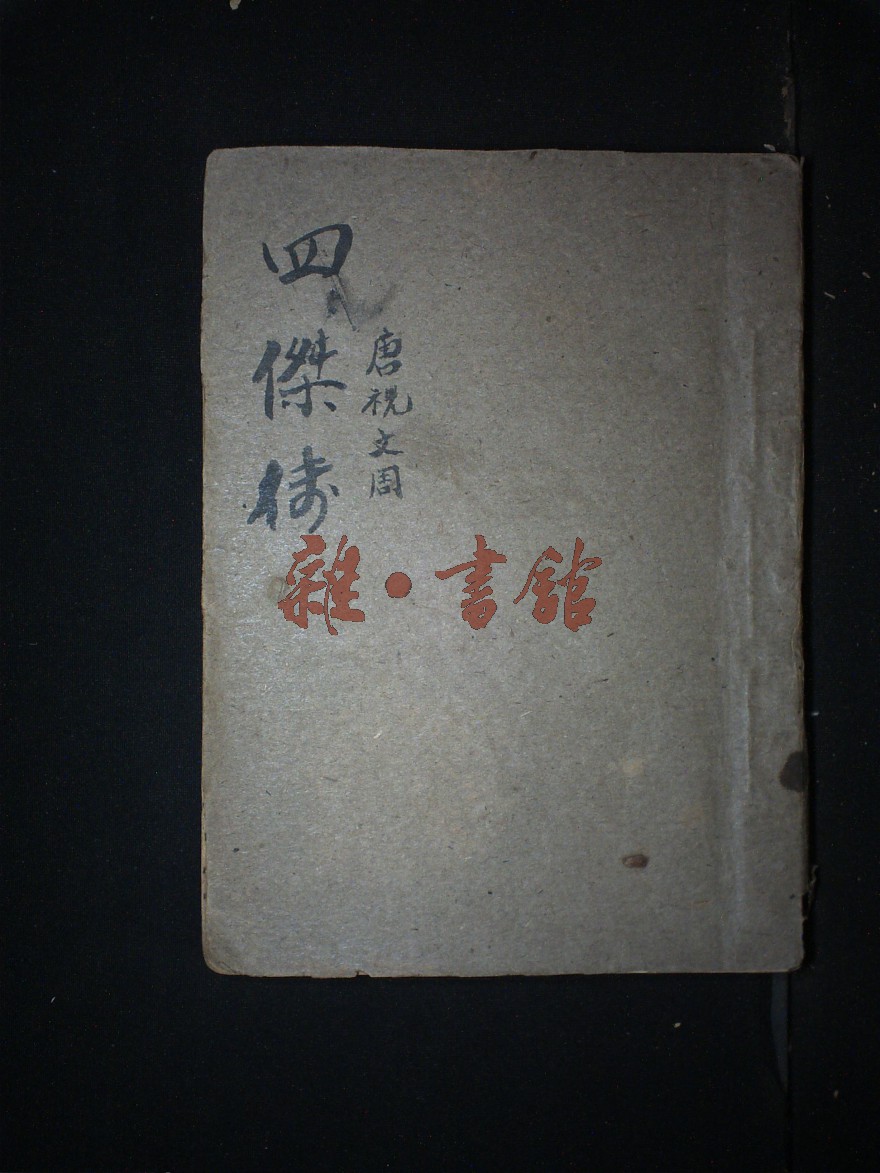 唐祝文周
四傑傳
雜·書館